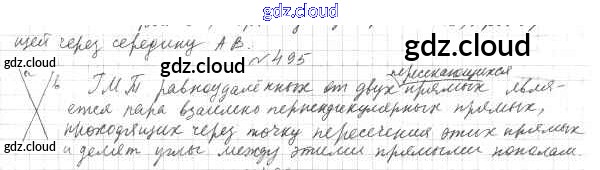 gdz.cloud
щей через середину АВ.
gdz.cloud gdz.cloud
№495
пересекающихся
a b ГМТ равноудалённых от двух прямых явля-
ется пара взаимно перпендикулярных прямых,
gdz.cloud
проходящих через точку пересечения этих прямых
gdz.cloud
и делят углы между этими прямыми пополам.
gdz.cloud gdz.cloud